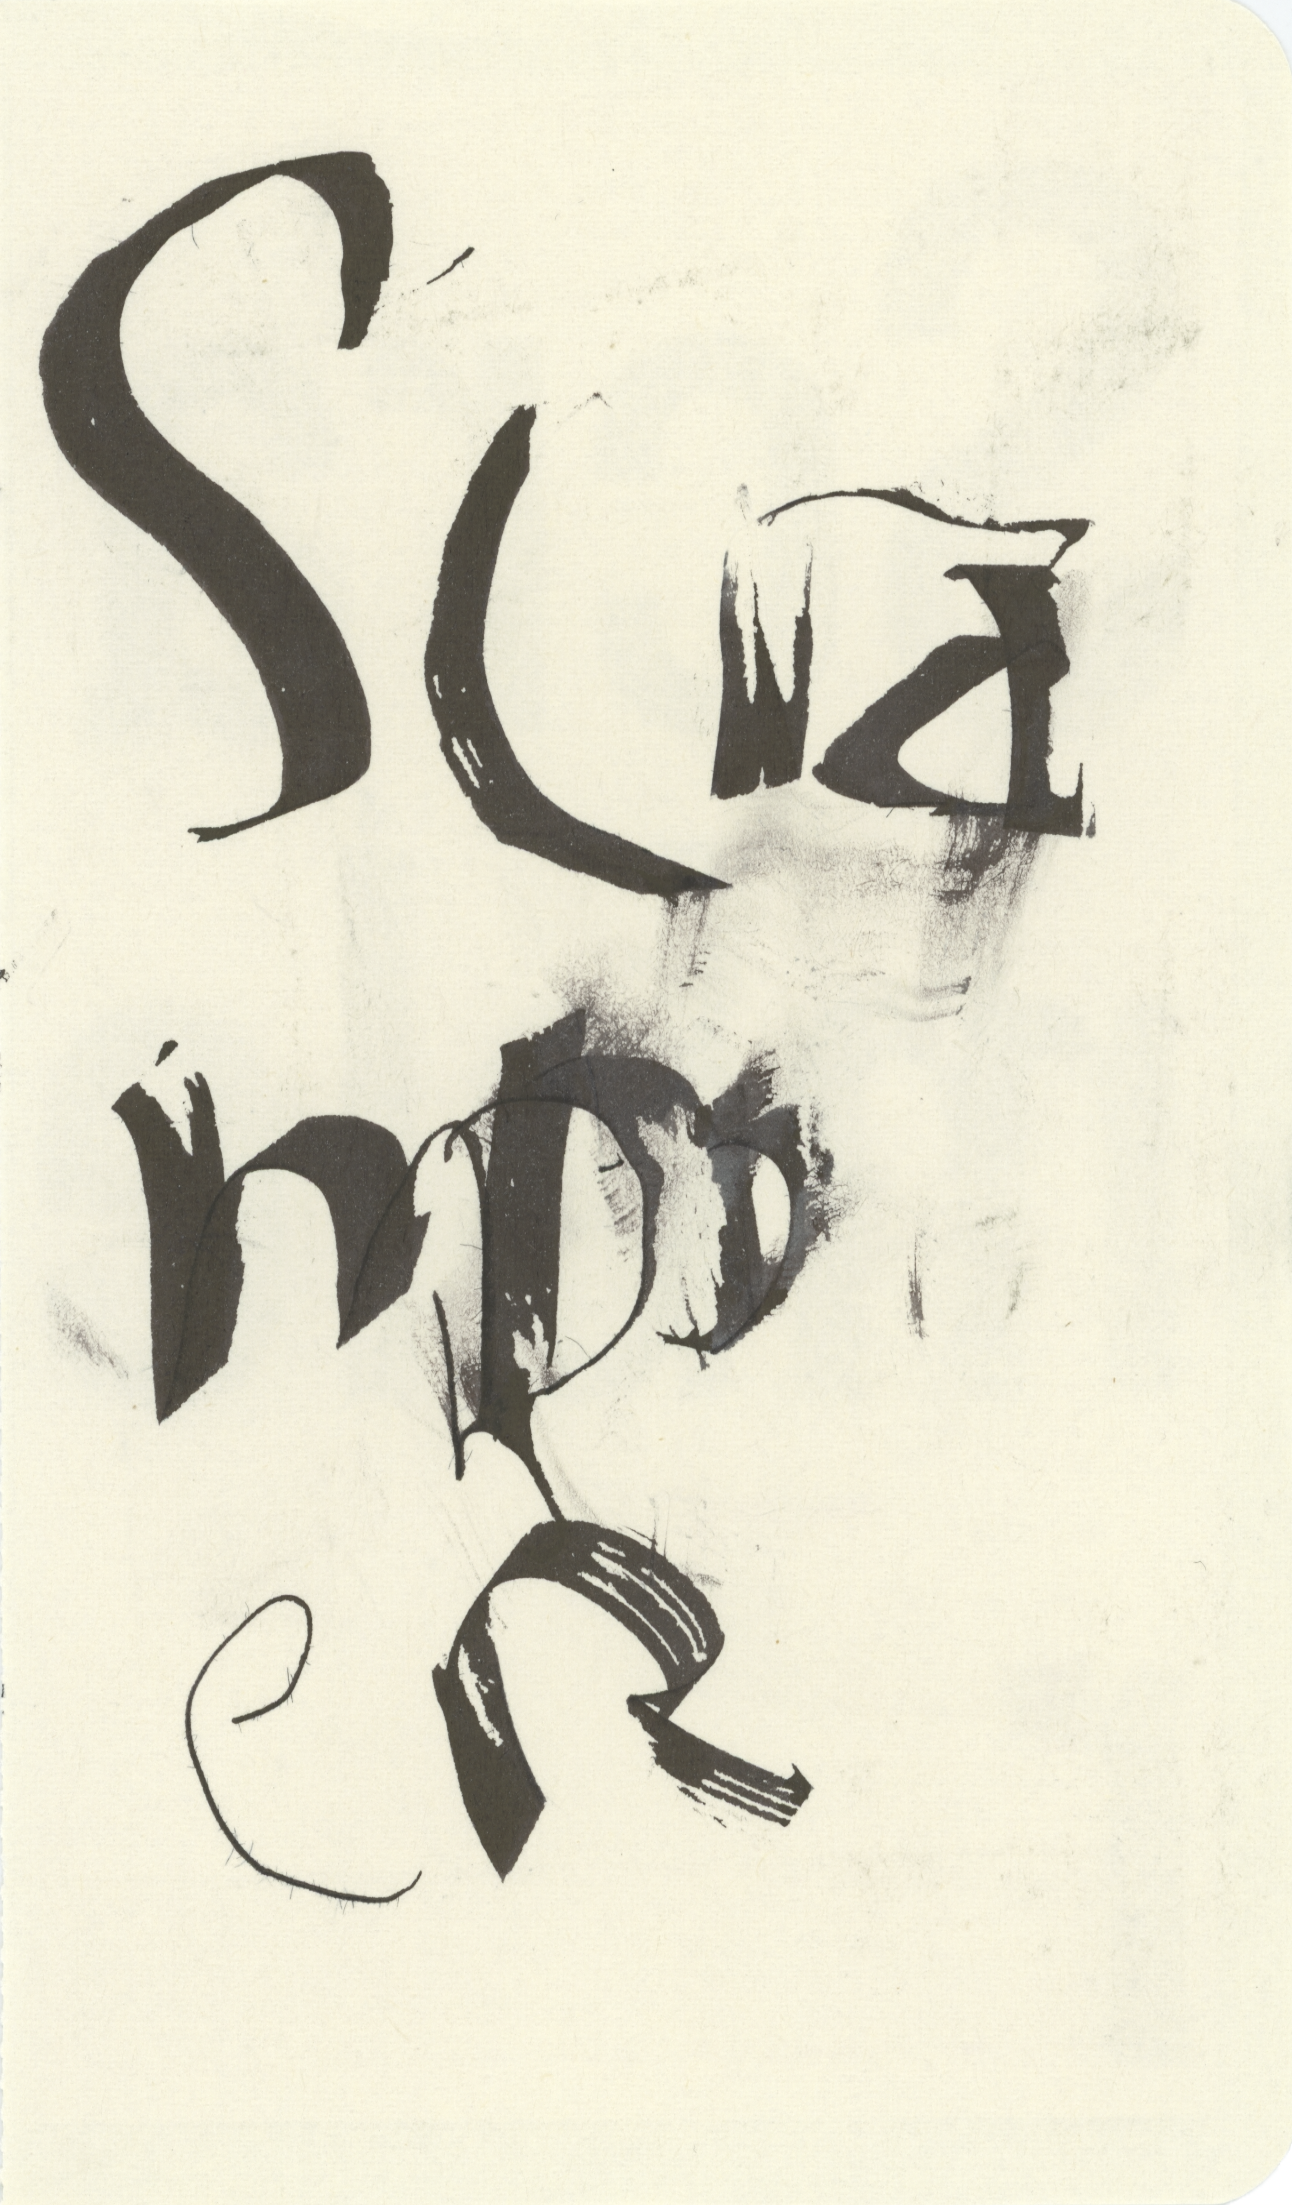 Sca
mp
eR